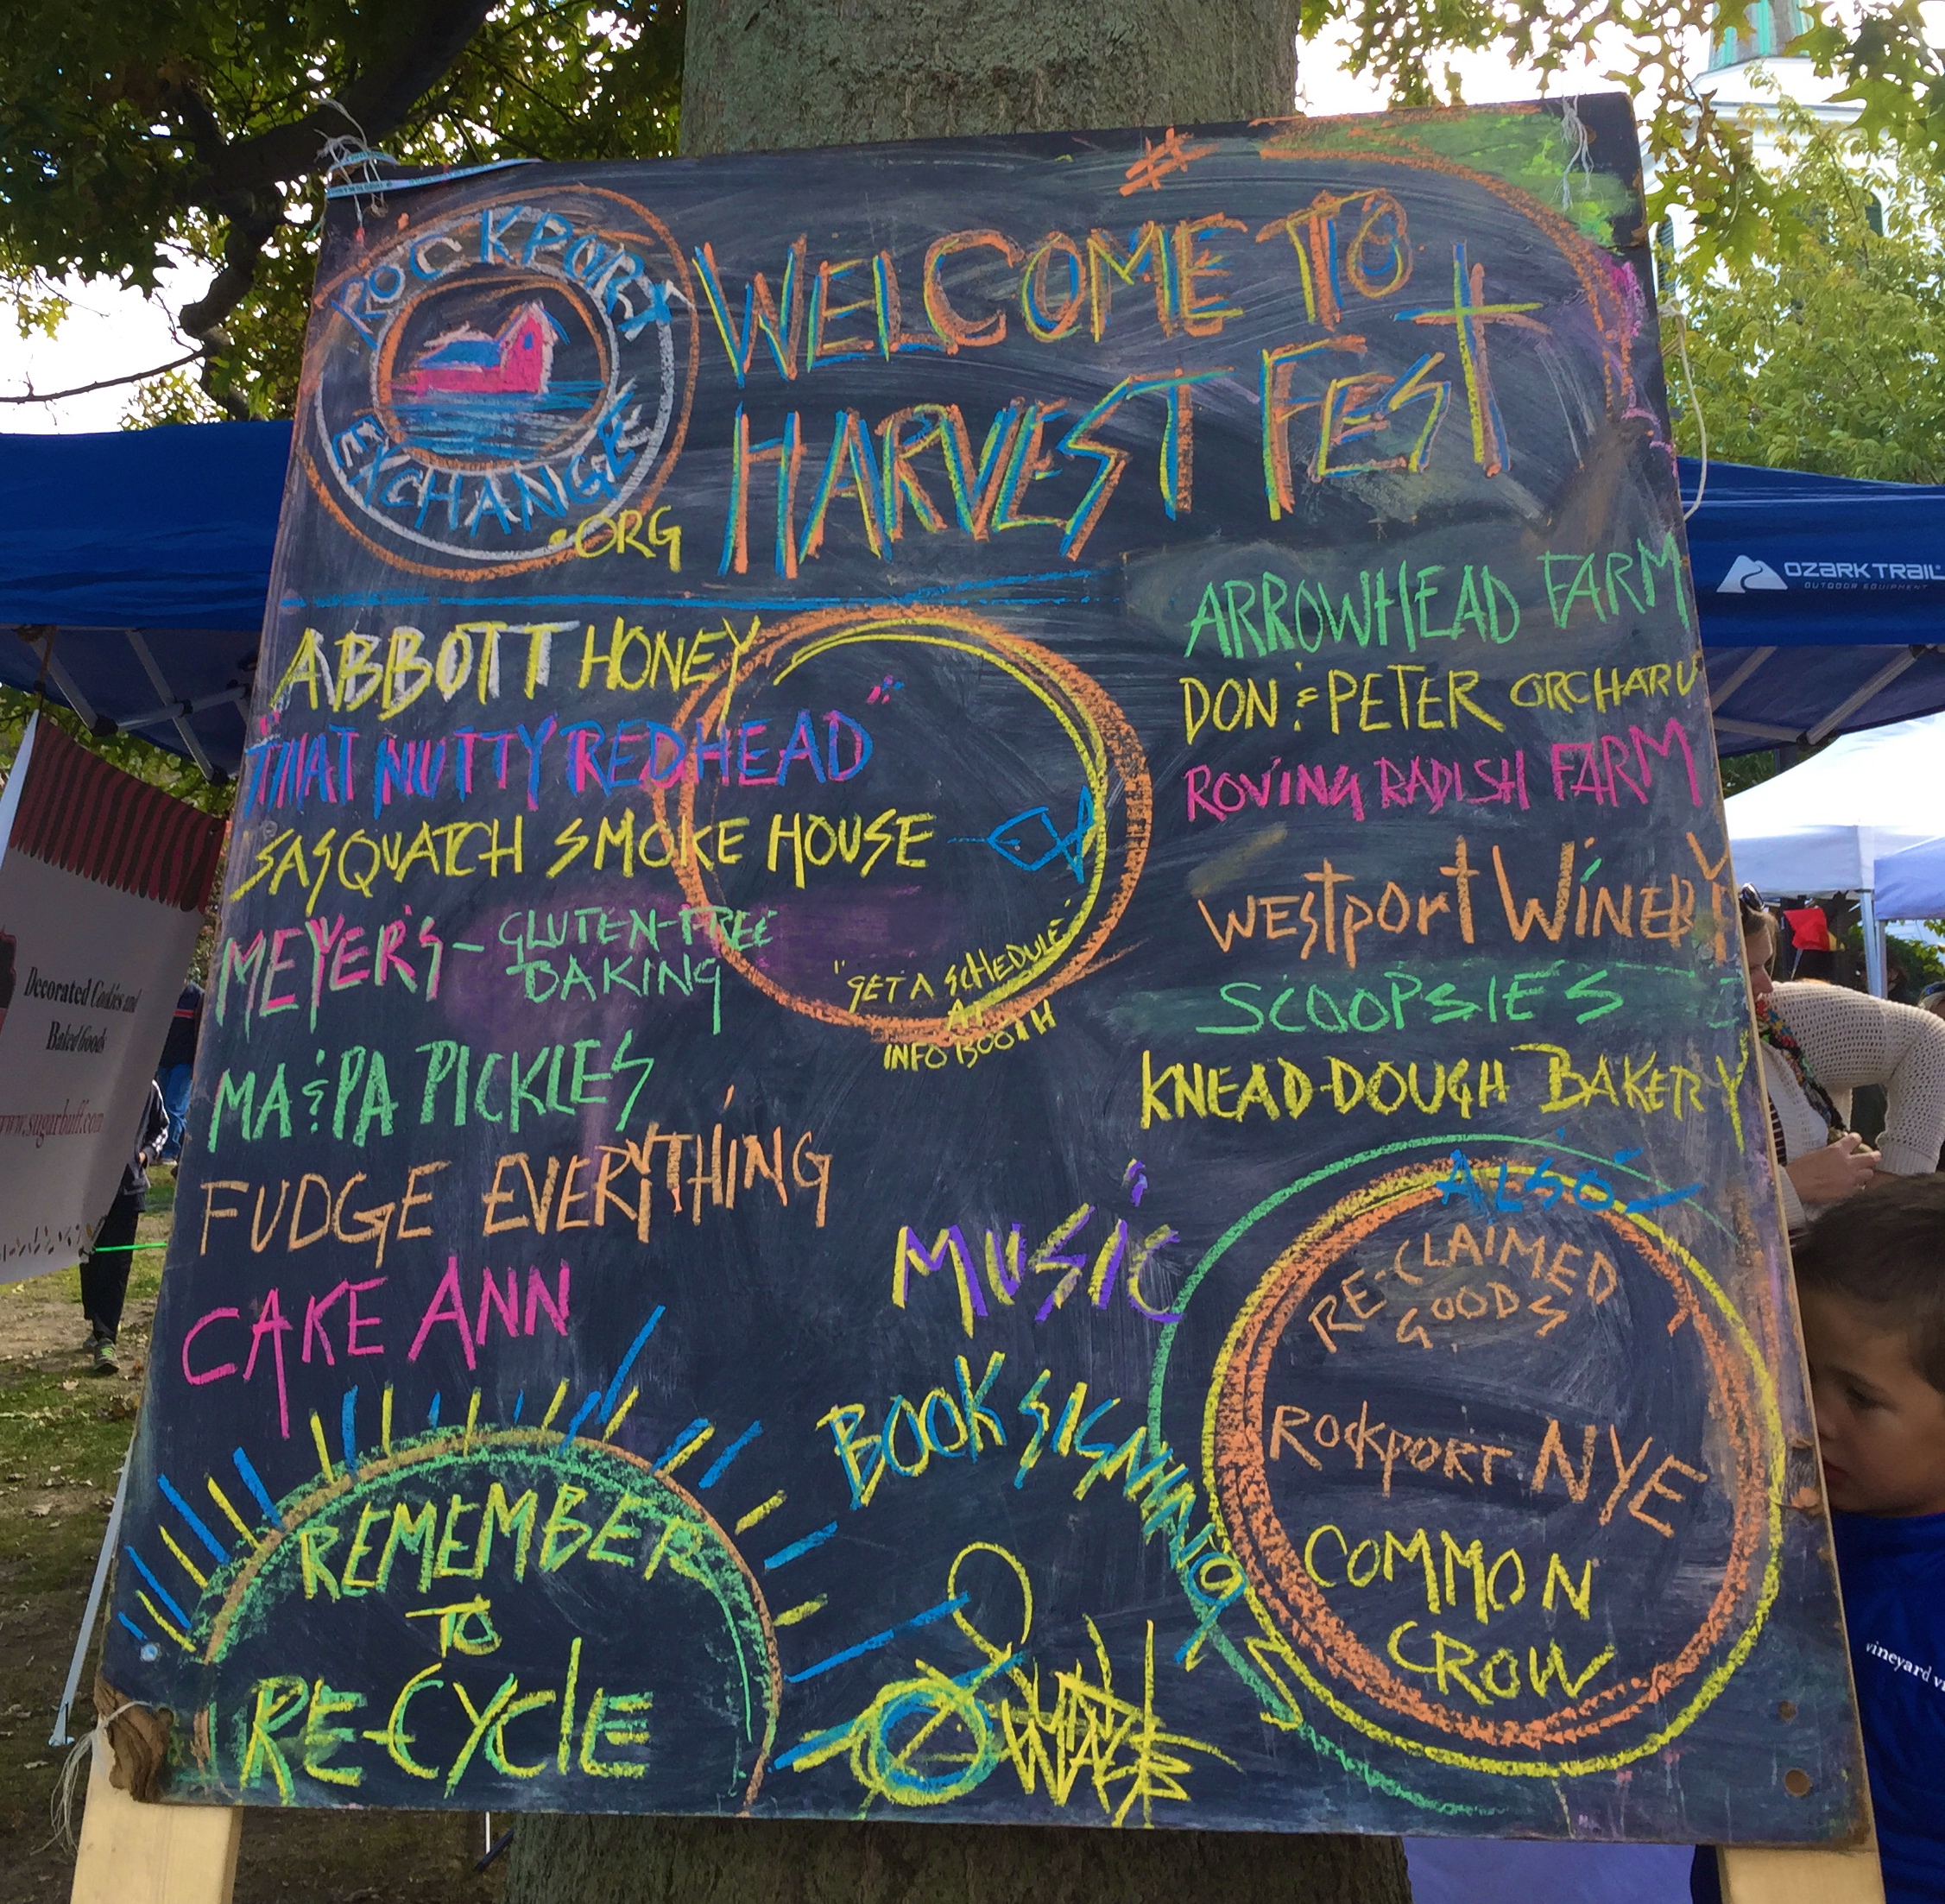 #
WELCOME TO
HARVEST FEST
ROCKPORT
EXCHANGE
.ORG
ABBOTT HONEY
"THAT NUTTY REDHEAD"
SASQUATCH SMOKE HOUSE
MEYER'S - GLUTEN-FREE
BAKING
MA & PA PICKLES
FUDGE EVERYTHING
CAKE ANN
"GET A SCHEDULE"
AT
INFO BOOTH
ARROWHEAD FARM
DON & PETER ORCHARD
ROVING RADISH FARM
WESTPORT WINERY
SCOOPSIE'S
KNEAD-DOUGH BAKERY
MUSIC
BOOK SIGNING
"ALSO"
RE-CLAIMED
GOODS
ROCKPORT NYE
COMMON
CROW
REMEMBER
TO
RE-CYCLE
OZARK TRAIL
OUTDOOR EQUIPMENT
Decorated Cookies and
Baked Goods
www.sugarbuff.com
vineyard